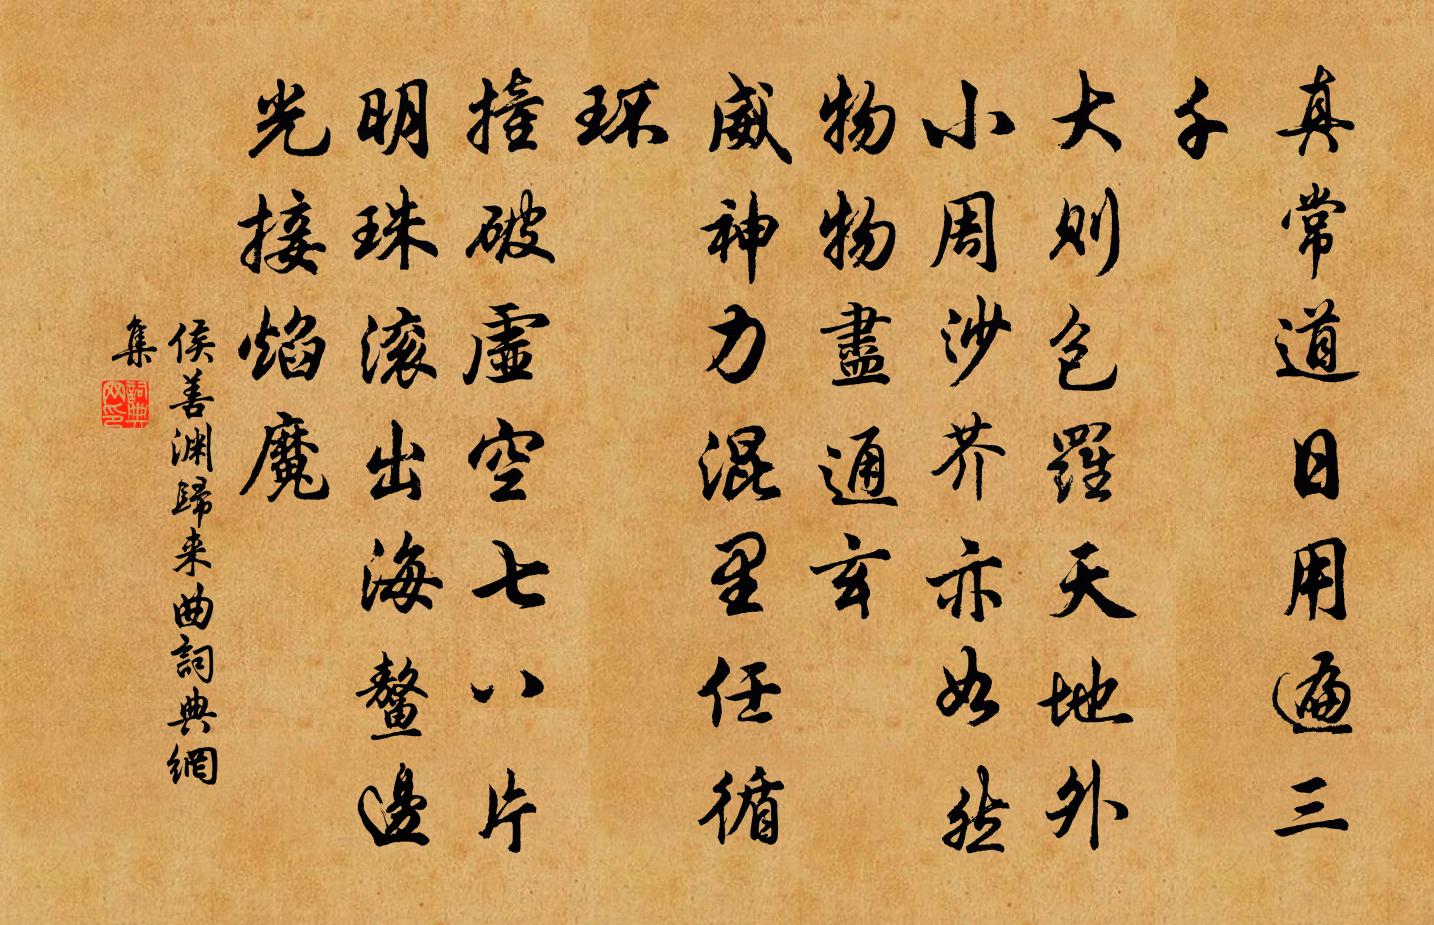 真常道日用遍三
千
大則包羅天地外
小周沙芥亦如然
物物盡通玄
威神力混里任循
环
撞破虛空七八片
明珠滚出海鰲邊
光接焰魔
侯善渊歸来曲詞典網
集
詞典网印